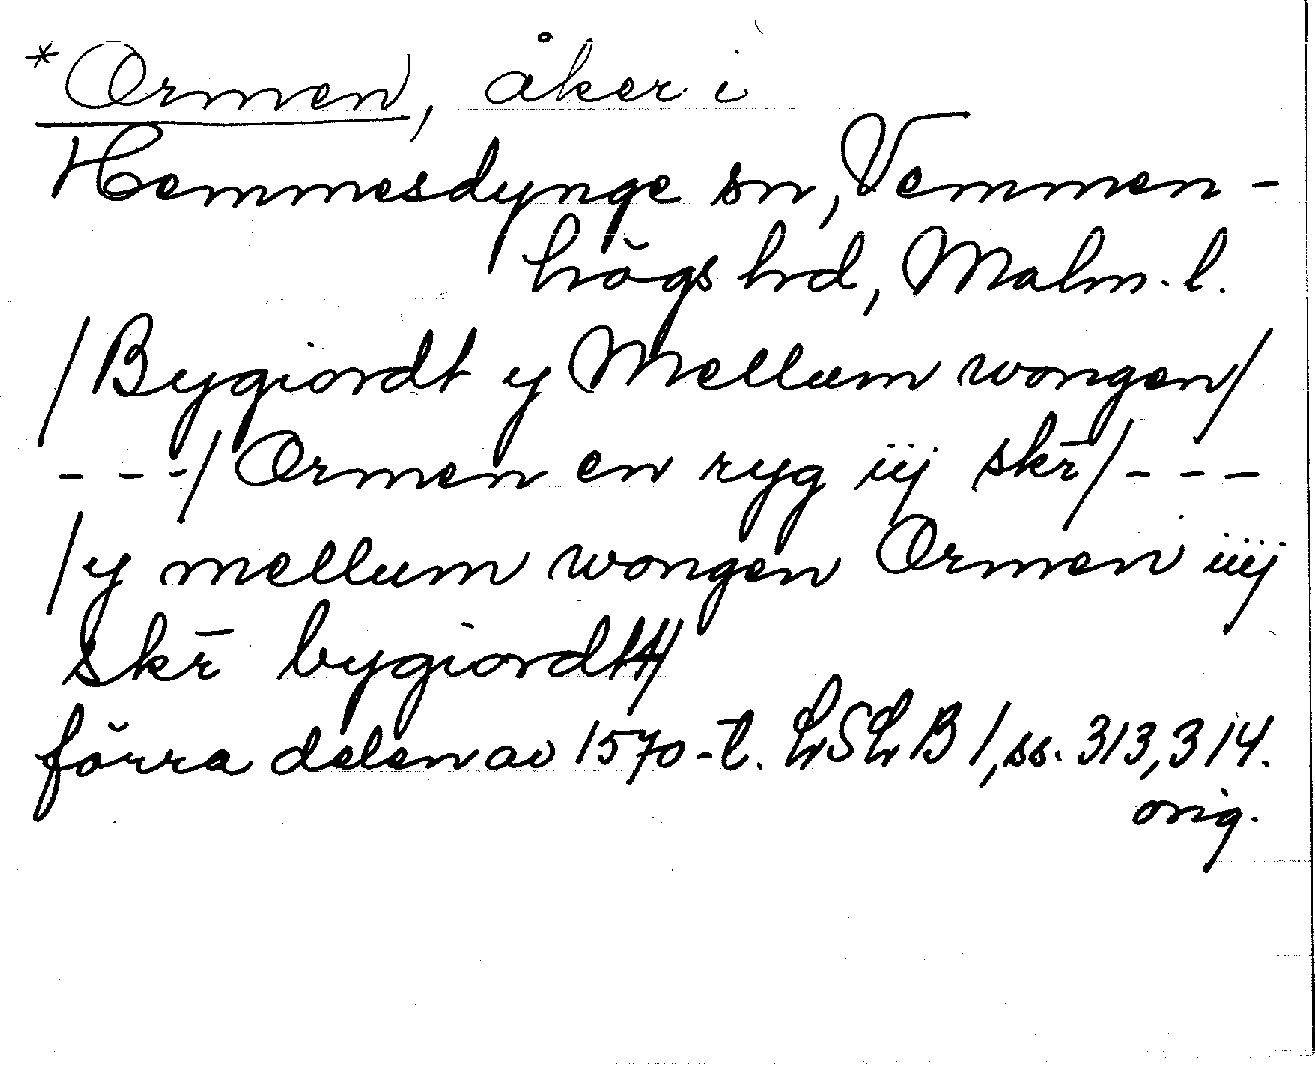 *Ormen, åker i
Hemmesdynge sn, Vemmen-
högs hd, Malm. l.
/Bygiordt y Mellum wongen/
---/Ormen en ryg iij skr̄/---
/y mellum wongen Ormen iiij
skr̄ bygiordt//
förra delen av 1570-t. LSLB 1, ss. 313, 314.
orig.